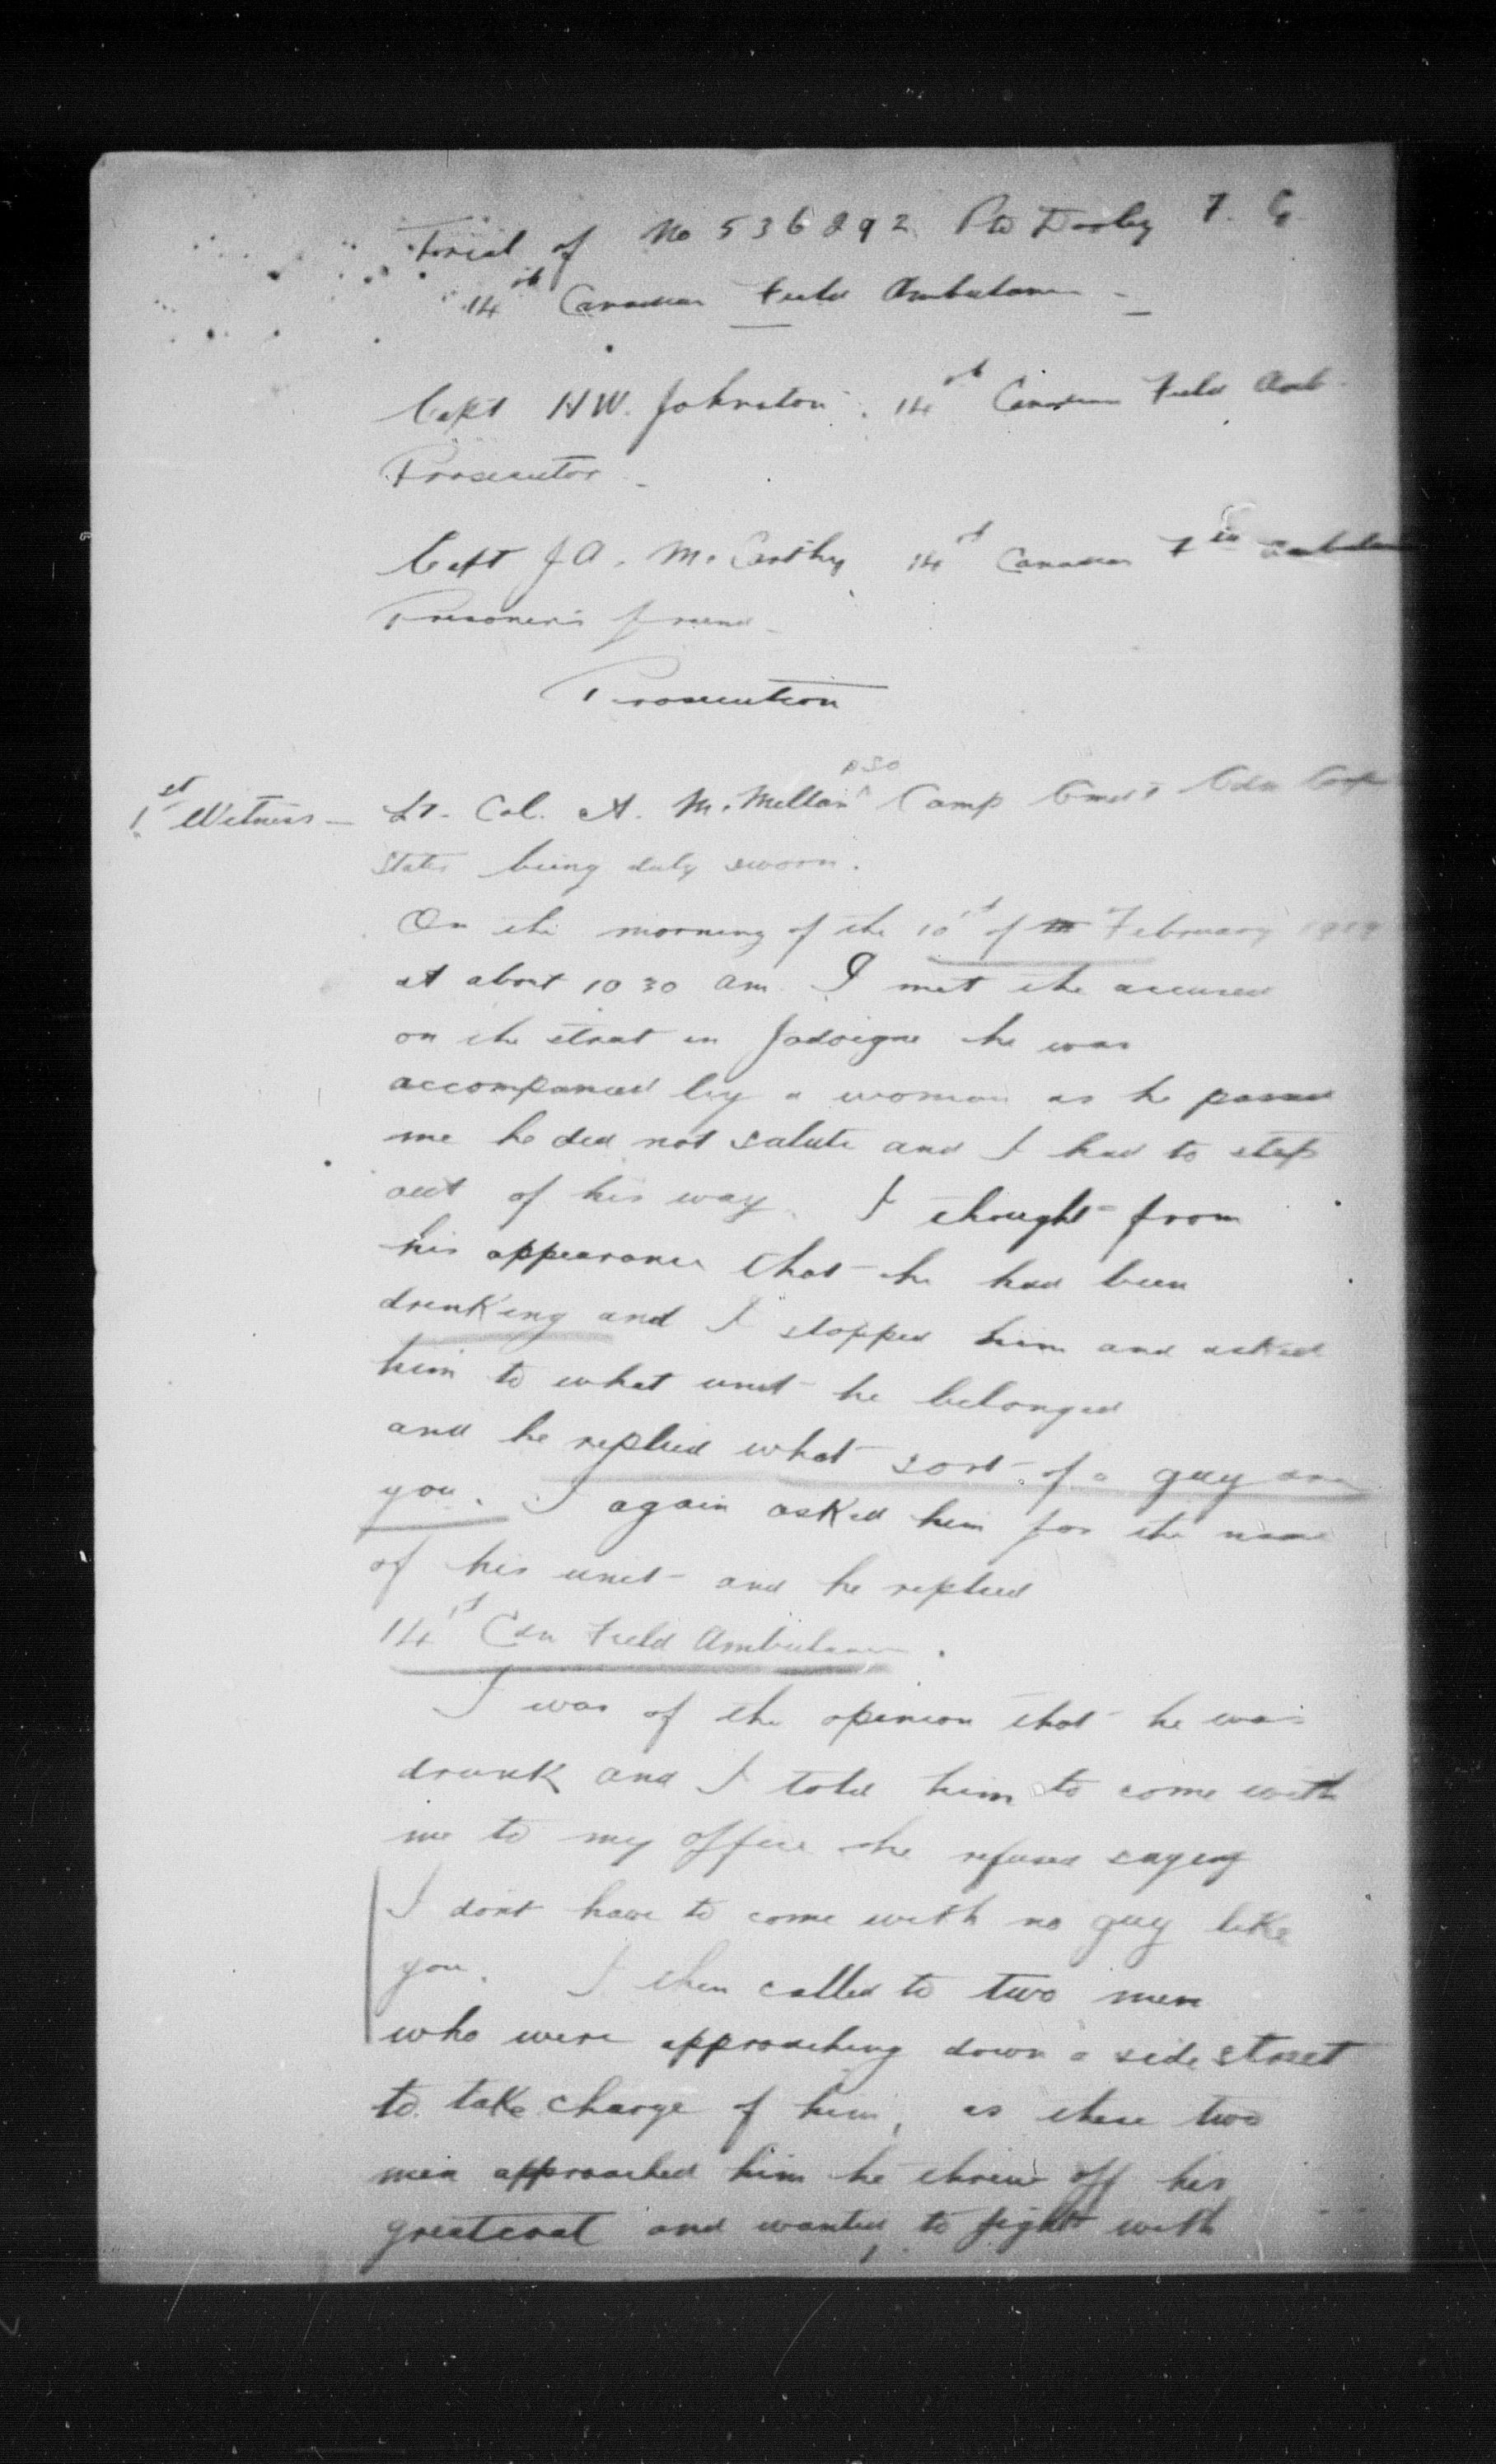 Trial of No 536292 Pte Dooley T. G.
14th Canadian Field Ambulance -
Capt H W. Johnston. 14th Canadian Field Amb.
Prosecutor -
Capt J A. McCarthy 14th Canadian Ambulance
Prisoner's friend -
Prosecution
1st Witness - Lt. Col. A. McMillan DSO Camp Cmdt Cdn Corps
States being duly sworn.
On the morning of the 10th of February 1919
at about 10 30 am I met the accused
on the street in Jodoigne he was
accompanied by a woman as he passed
me he did not salute and I had to step
out of his way. I thought from
his appearance that he had been
drinking and I stopped him and asked
him to what unit he belonged
and he replied what sort of a guy are
you. I again asked him for the name
of his unit and he replied
14th Cdn Field Ambulance.
I was of the opinion that he was
drunk and I told him to come with
me to my office he refused saying
I dont have to come with no guy like
you. I then called to two men
who were approaching down a side street
to take charge of him, as these two
men approached him he threw off his
greatcoat and wanted to fight with